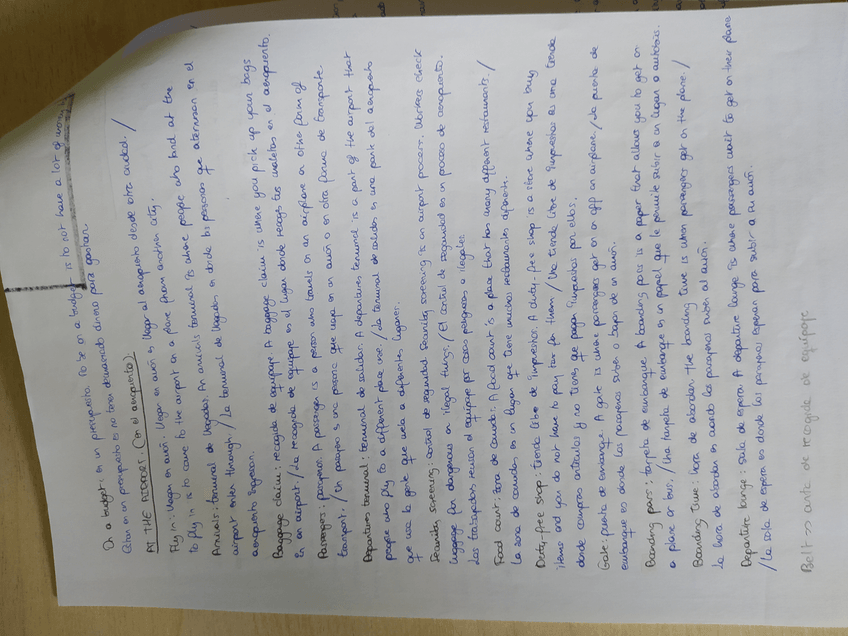 On a budget: en un presupuesto. To be on a budget is to not have a lot of money to
Estar en un presupuesto es no tener demasiado dinero para gastar.
AT THE AIRPORT. (en el aeropuerto).
Fly in: llegar en avión. Llegar en avión es llegar al aeropuerto desde otra ciudad. /
to fly in is to come to the airport on a plane from another city.
Arrivals: terminal de llegadas. An arrivals terminal is where people who land at the
airport enter through. / La terminal de llegadas es donde las personas que aterrizan en el
aeropuerto ingresan.
Baggage claim: recogida de equipaje. A baggage claim is where you pick up your bags
in an airport / La recogida de equipaje es el lugar donde recoges tus maletas en el aeropuerto.
Passenger: pasajero. A passenger is a person who travels on an airplane or other form of
transport. / Un pasajero es una persona que viaja en un avión o en otra forma de transporte.
Departures terminal: terminal de salidas. A departures terminal is a part of the airport that
people who fly to a different place use. / La terminal de salidas es una parte del aeropuerto
que usa la gente que vuela a diferentes lugares.
Security screening: control de seguridad. Security screening is an airport process. Workers check
luggage for dangerous or illegal things. / El control de seguridad es un proceso de aeropuerto.
Los trabajadores revisan el equipaje por cosas peligrosas o ilegales.
Food court: zona de comidas. A food court is a place that has many different restaurants. /
La zona de comidas es un lugar que tiene muchos restaurantes diferents.
Duty-free shop: tienda libre de impuestos. A duty-free shop is a store where you buy
items and you do not have to pay tax for them / Una tienda libre de impuestos es una tienda
donde compras artículos y no tienes que pagar impuestos por ellos.
Gate: puerta de embarque. A gate is where passengers get on or off an airplane / La puerta de
embarque es donde los pasajeros suben o bajan de un avión.
Boarding pass: tarjeta de embarque. A boarding pass is a paper that allows you to get on
a plane or bus. / Una tarjeta de embarque es un papel que le permite subir a un avión o autobús.
Boarding time: hora de abordar. The boarding time is when passengers get on the plane. /
La hora de abordar es cuando los pasajeros suben al avión.
Departure lounge: sala de espera. A departure lounge is where passengers wait to get on their plane
/ La sala de espera es donde los pasajeros esperan para subir a su avión.
Belt >> cinta de recogida de equipaje